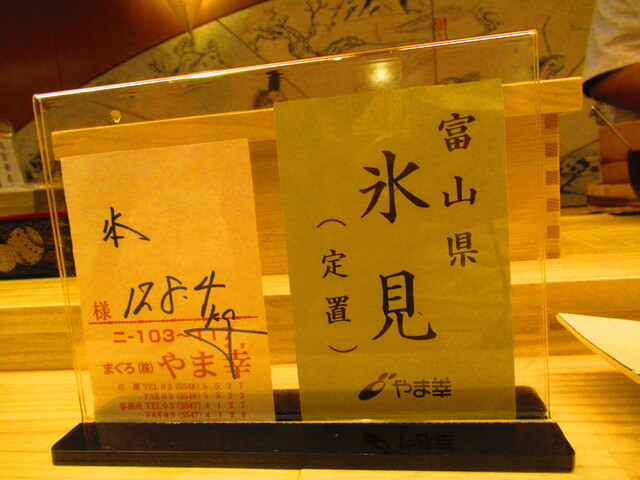 本
128.4kg
様
ニ-103~11
まぐろ(株)やま幸
店舗 TEL 03 (5548) 5527
FAX 03 (5548) 5523
事務所 TEL 03 (5547) 4127
FAX 03 (5547) 4126
富山県
氷見
(定置)
やま幸